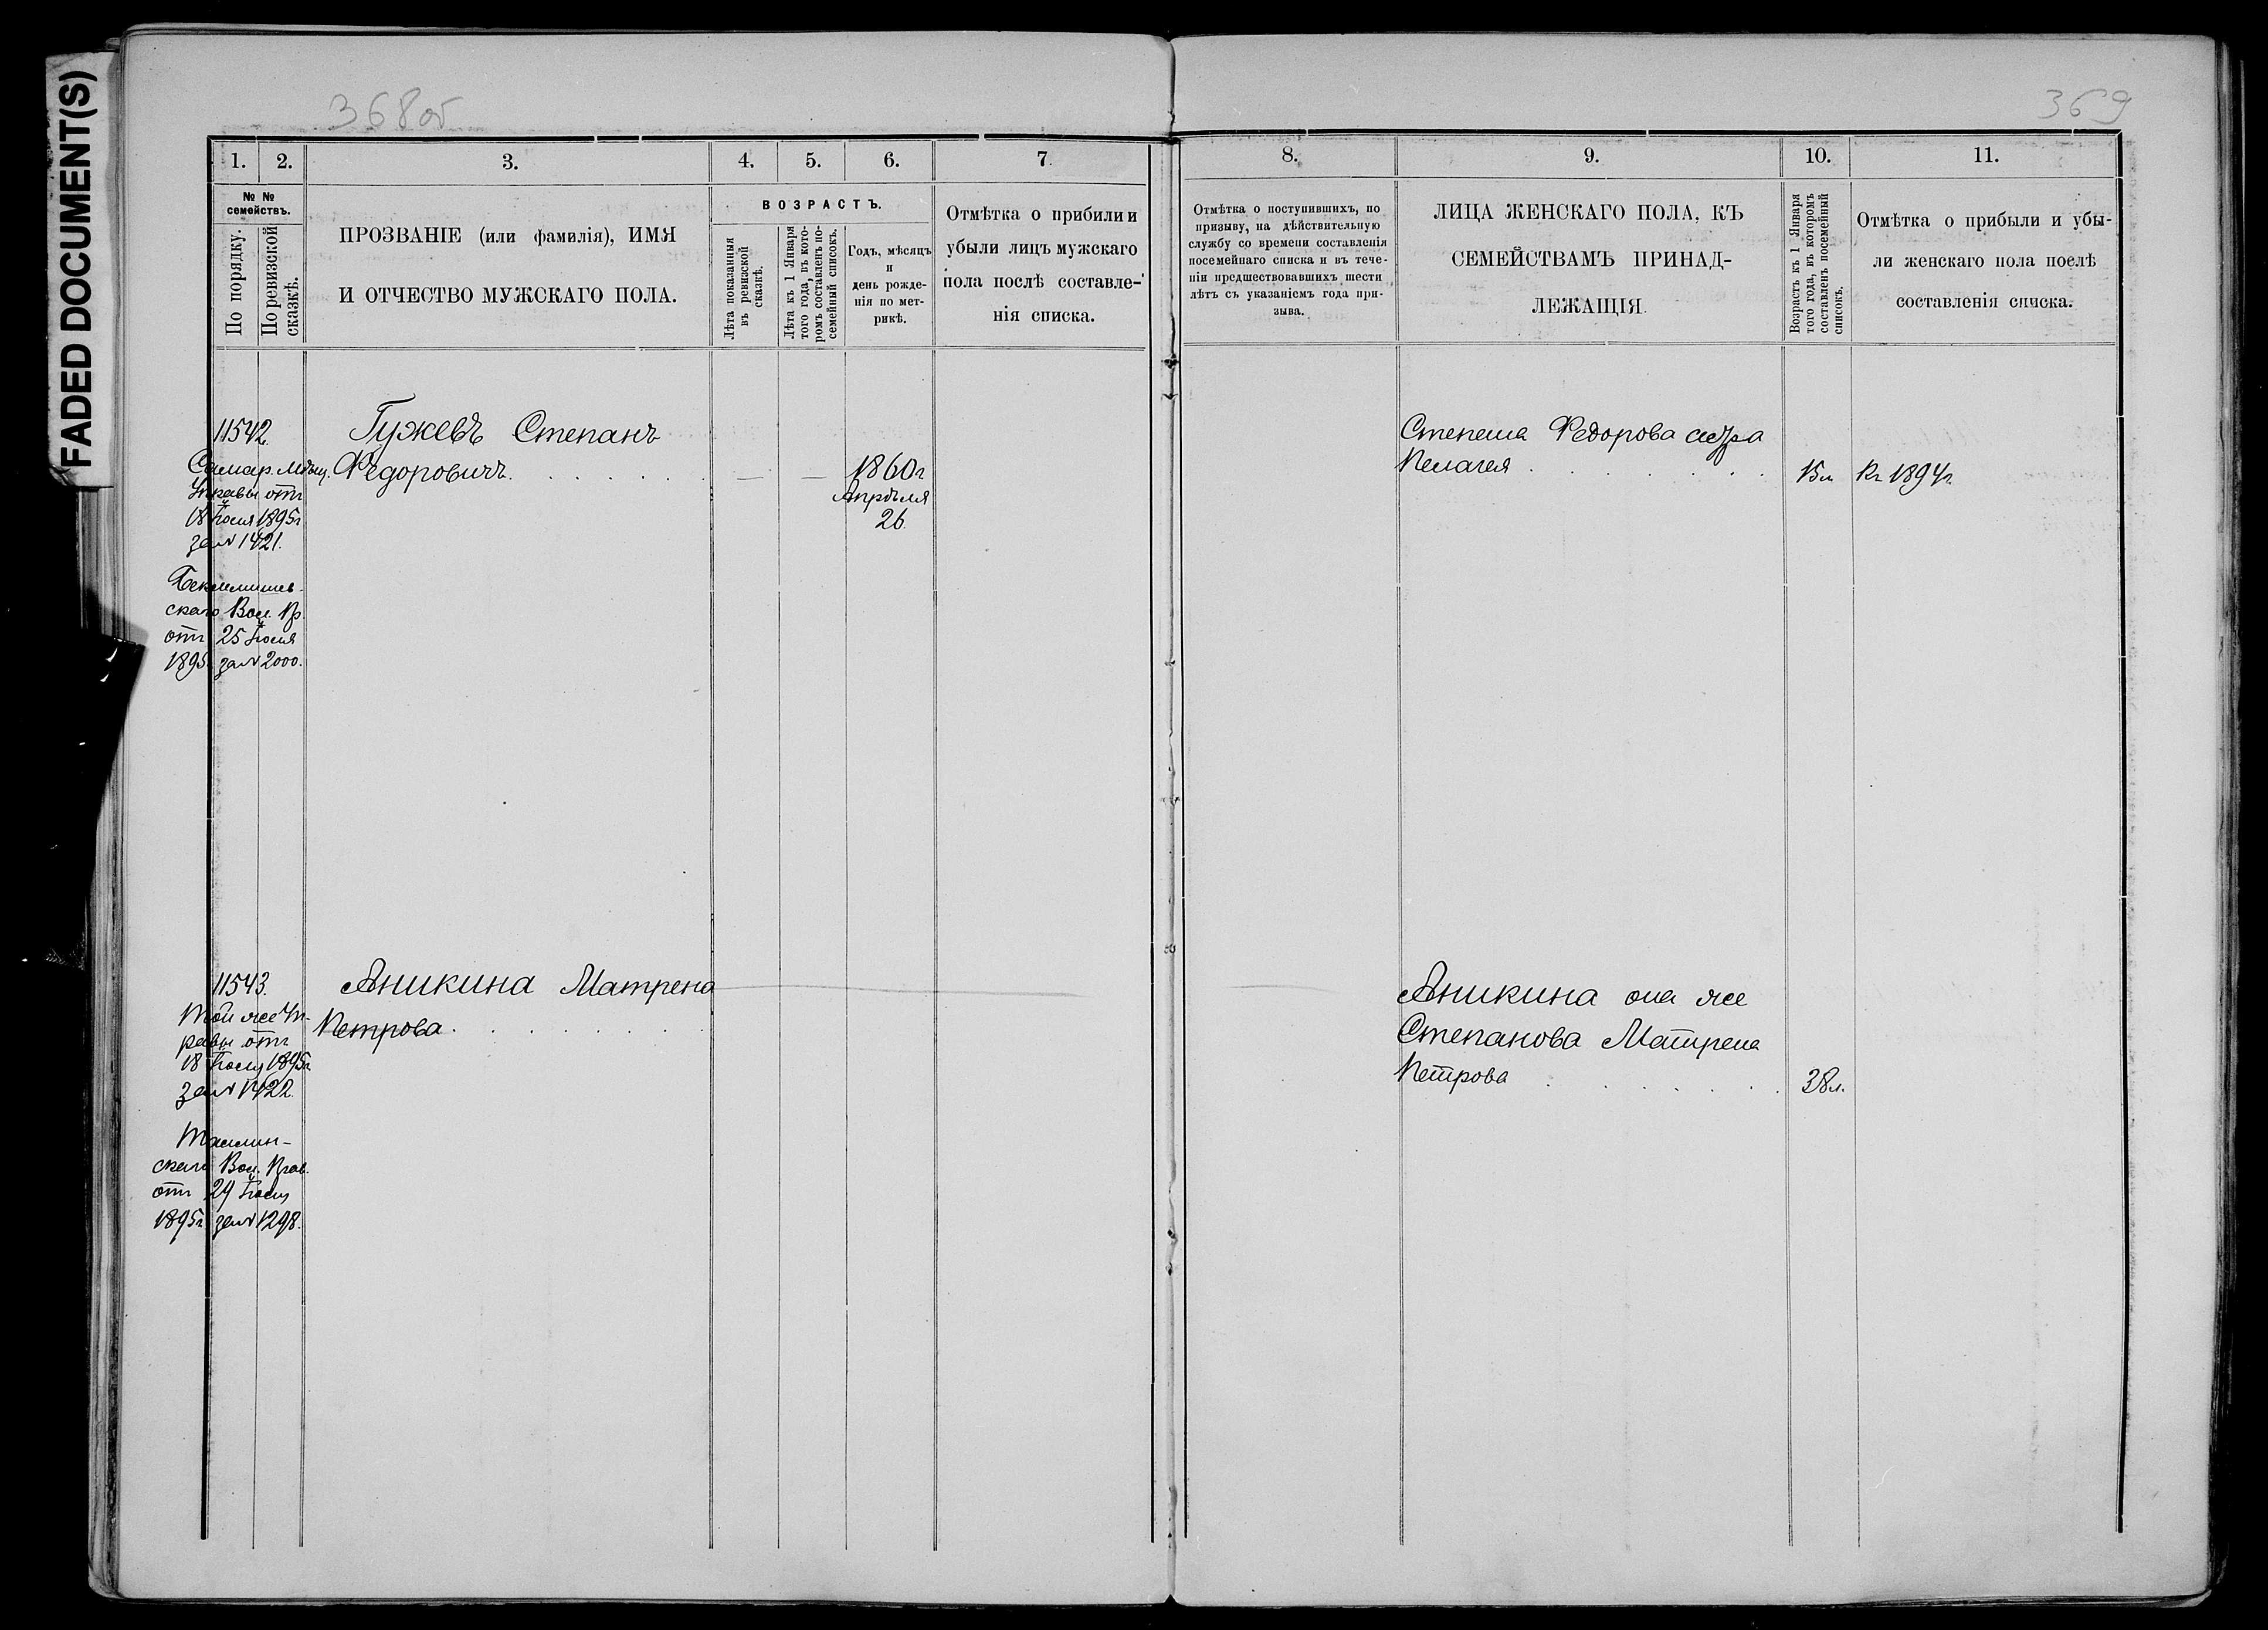 FADED DOCUMENT(S)
368 об
1.
2.
3.
4.
5.
6.
7
№ №
семействъ.
По порядку.
По ревизской
сказкѣ.
ПРОЗВАНІЕ (или фамилія), ИМЯ
И ОТЧЕСТВО МУЖСКАГО ПОЛА.
ВОЗРАСТЪ.
Лѣта показанныя
въ ревизской
сказкѣ.
Лѣта къ 1 Января
того года, въ кото-
ромъ составленъ по-
семейный списокъ.
Годъ, мѣсяцъ
и
день рожде-
нія по мет-
рикѣ.
Отмѣтка о прибыли и
убыли лицъ мужскаго
пола послѣ составле-
нія списка.
11542.
Самар. Мѣщ.
Управы отъ
18 Іюля 1895г
за № 1421.
Бекемишев-
скаго Вол. Пр.
отъ 25 Іюля
1895 за № 2000.
Гужевъ Степанъ
Федоровичъ
— — 1860г
Апрѣля
26
11543.
Той же Уп-
равы отъ
18 Іюля 1895г
за № 1422.
скаго Вол. Прав.
отъ 24 Іюля
1895г за № 1298.
Аникина Матрена
Петрова
369
8.
9.
10.
11.
Отмѣтка о поступившихъ, по
призыву, на дѣйствительную
службу со времени составленія
посемейнаго списка и въ тече-
ніи предшествовавшихъ шести
лѣтъ съ указаніемъ года при-
зыва.
ЛИЦА ЖЕНСКАГО ПОЛА, КЪ
СЕМЕЙСТВАМЪ ПРИНАД-
ЛЕЖАЩІЯ.
Возрастъ къ 1 Января
того года, въ которомъ
составленъ посемейный
списокъ.
Отмѣтка о прибыли и убы-
ли женскаго пола послѣ
составленія списка.
Степана Федорова сестра
Пелагея 15л къ 1894г
Аникина она же
Степанова Матрена
Петрова 38л.